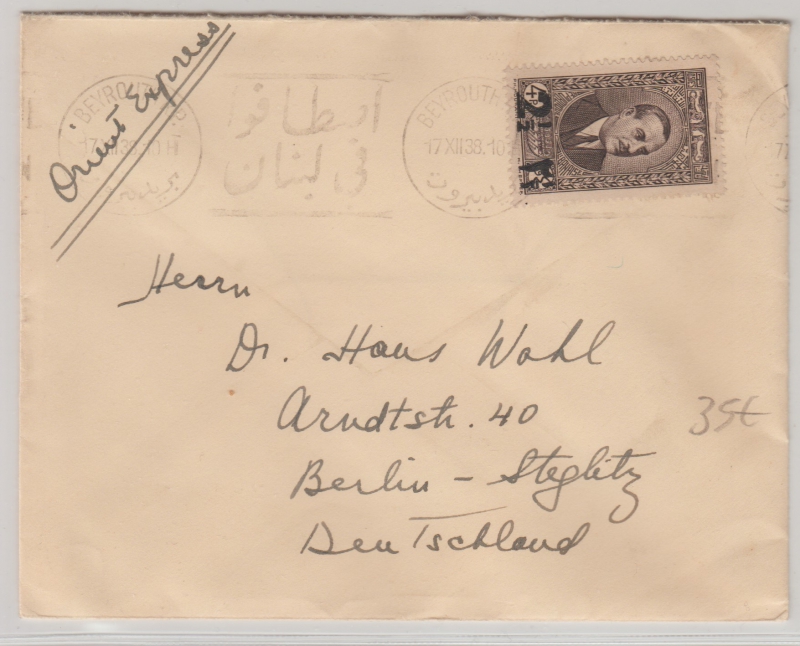 Orient Express
BEYROUTH
17 XII 38. 10 H
اصطافوا
في لبنان
BEYROUTH
17 XII 38. 10
بيروت
2½ P
4 P
Herrn
Dr. Hans Wohl
Arndtstr. 40
Berlin - Steglitz
Deutschland